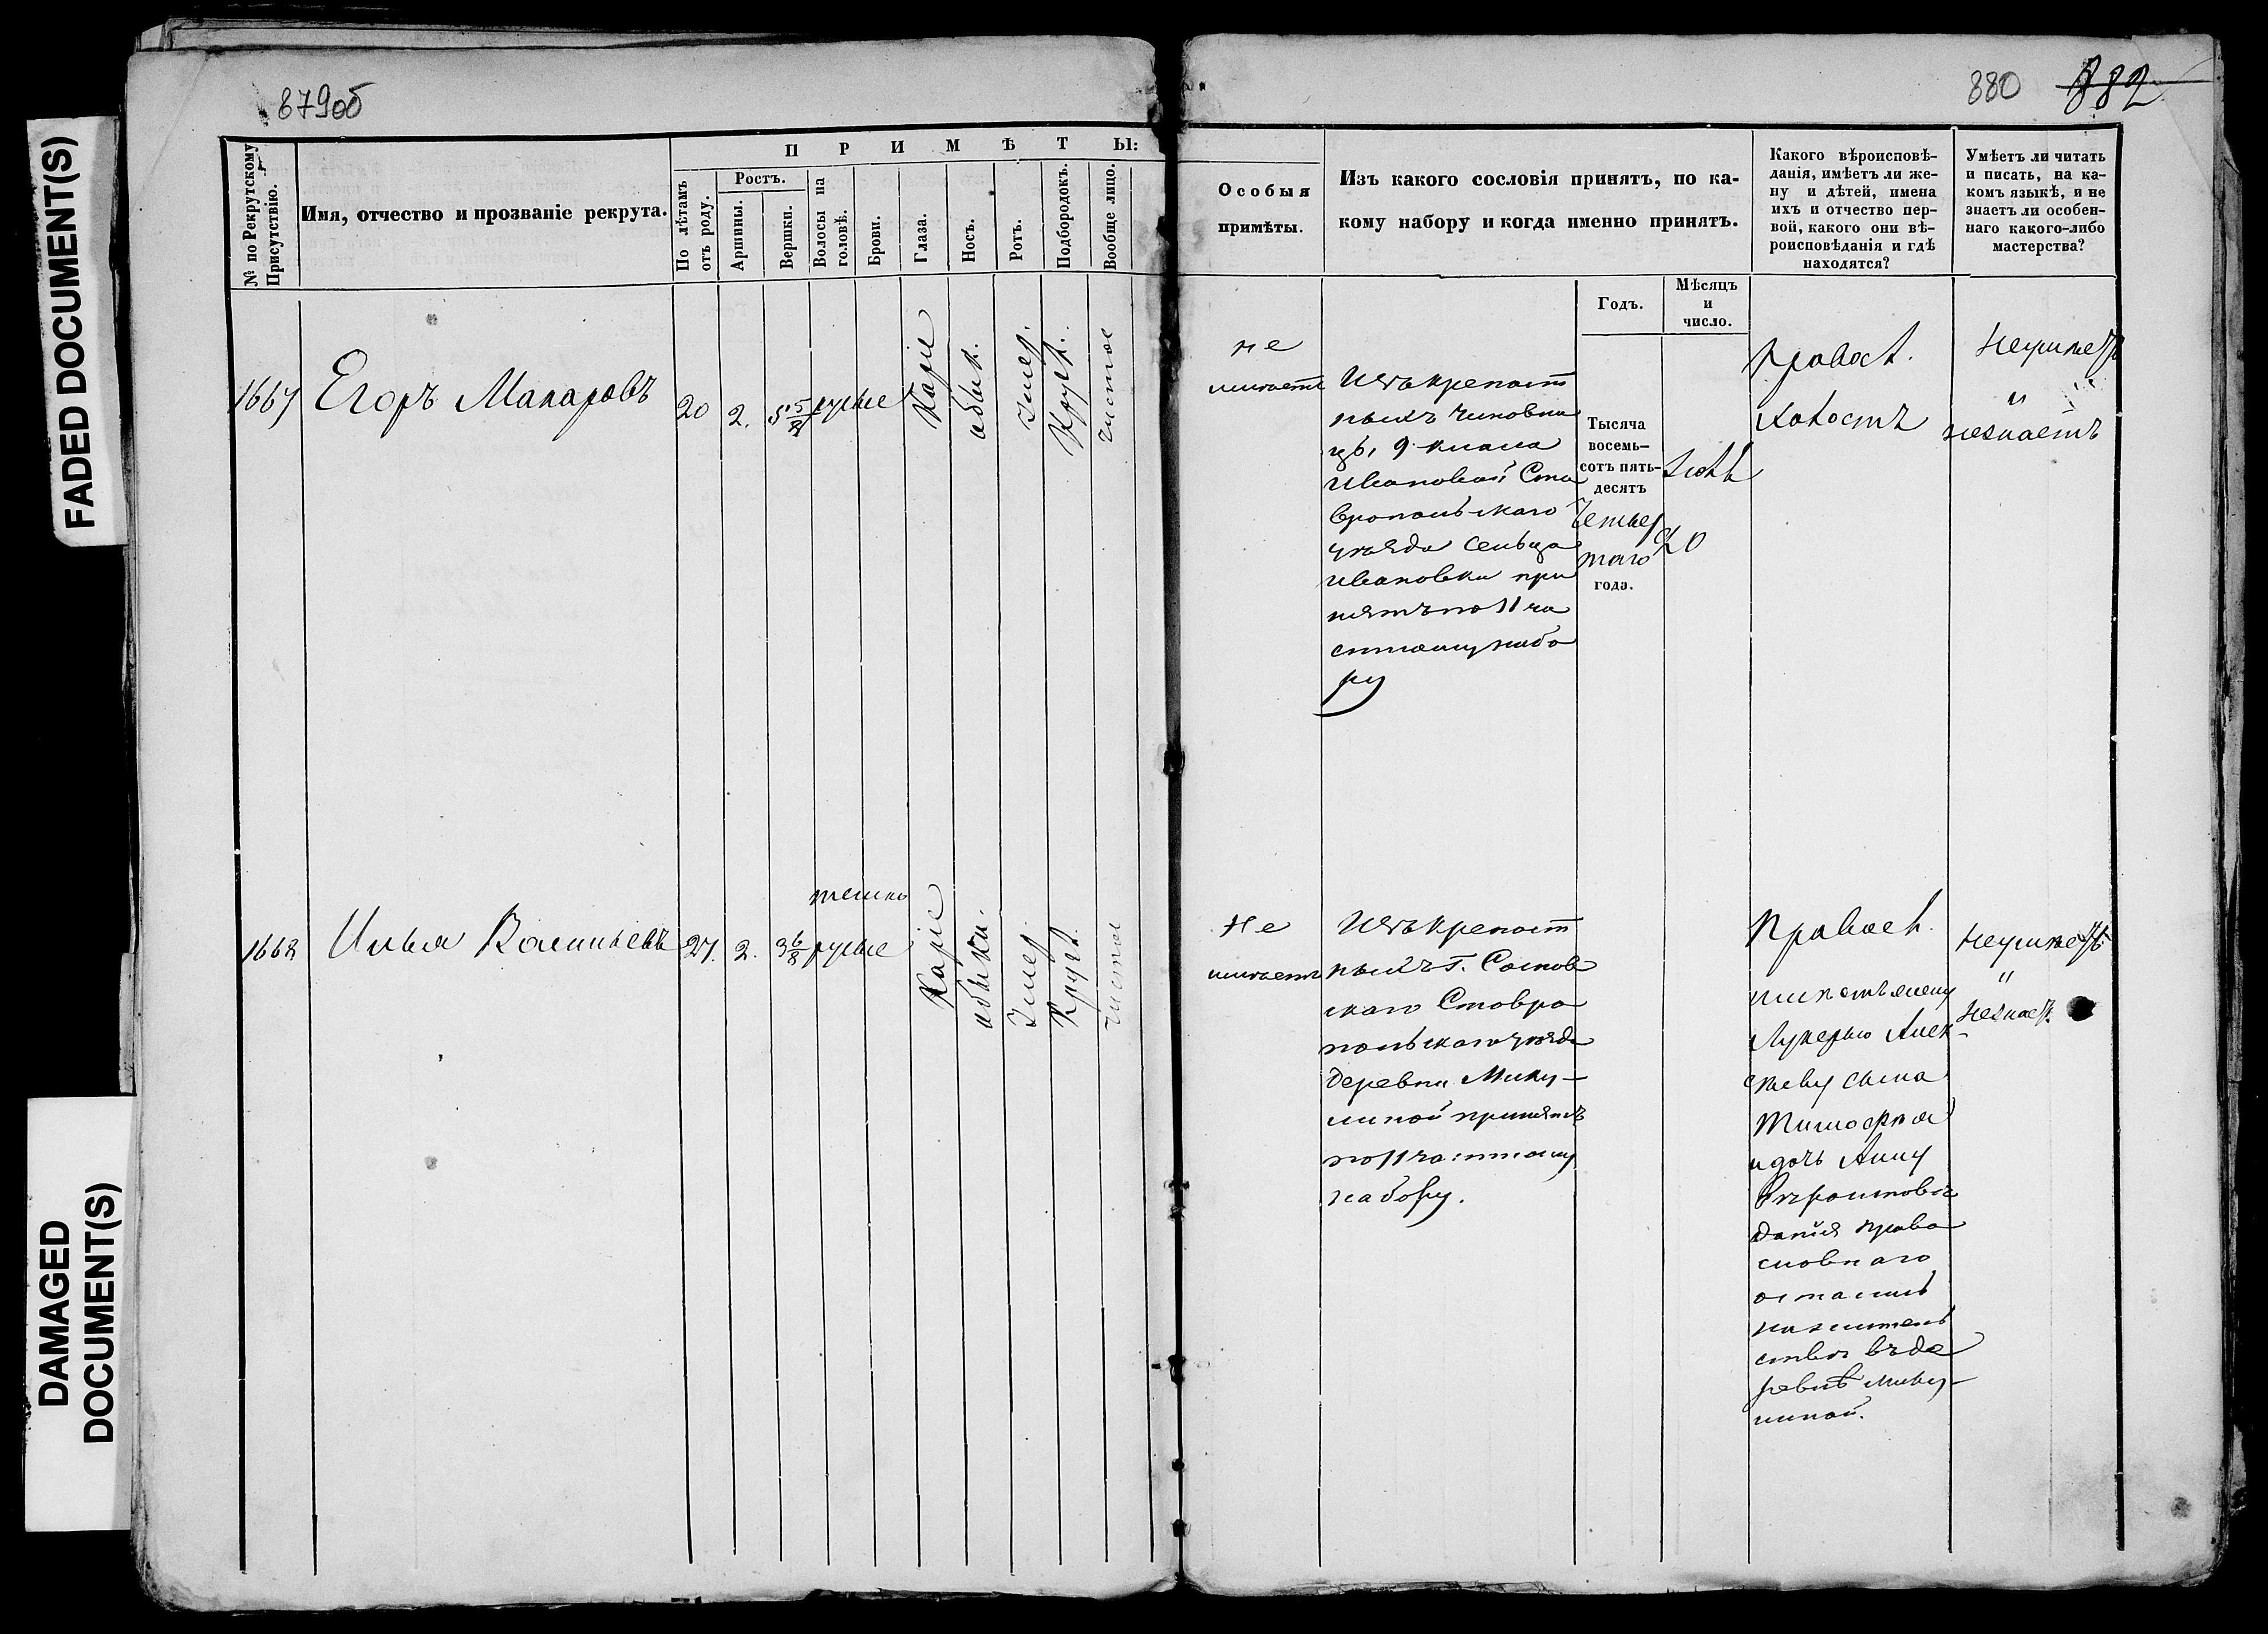 FADED DOCUMENT(S)
DAMAGED
DOCUMENT(S)
879об
880 882
№ по Рекрутскому
Присутствію.
Имя, отчество и прозваніе рекрута.
ПРИМѢТЫ:
По лѣтамъ
отъ роду.
Ростъ.
Аршины.
Вершки.
Волосы на
головѣ.
Брови.
Глаза.
Носъ.
Ротъ.
Подбородокъ.
Вообще лицо.
Особыя
примѣты.
Изъ какого сословія принятъ, по ка-
кому набору и когда именно принятъ.
Годъ.
Мѣсяцъ
и
число.
Какого вѣроисповѣ-
данія, имѣетъ ли же-
ну и дѣтей, имена
ихъ и отчество пер-
вой, какого они вѣ-
роисповѣданія и гдѣ
находятся?
Умѣетъ ли читать
и писать, на ка-
комъ языкѣ, и не
знаетъ ли особен-
наго какого-либо
мастерства?
1667
Егоръ Макаровъ
20
2.
5 5/8
русые
Каріе
обык.
Умер.
Кругл.
чистое
не
имѣетъ
Изъ крепост
ныхъ чиновни
цы 9. класа
Ивановой Ста
вропольскаго
уѣзда сельца
Ивановки при
нятъ по 11 ча
стному набо
ру
Тысяча
восемь-
сотъ пять-
десятъ
Четвер
таго
года.
20
Правос.
Холостъ
Неумѣетъ
"
незнаетъ
1668
Илья Васильевъ
27.
2.
3 6/8
темно
русые
Каріе
обыкн.
Умер.
Кругл.
чистое
Не
имѣетъ
Изъ крепост
ныхъ Г. Соснов
скаго Ставро
польскаго уѣзда
деревни Мику-
линой принятъ
по 11 частному
набору.
Правосл.
имѣетъ жену
Лукерью Алек-
сѣеву сына
Тимофея
и дочь Анну
Вѣроисповѣ
данія право
словнаго
остались
на житель
ствѣ въ де
ревнѣ Мику-
линой.
Неумѣетъ
"
Незнаетъ